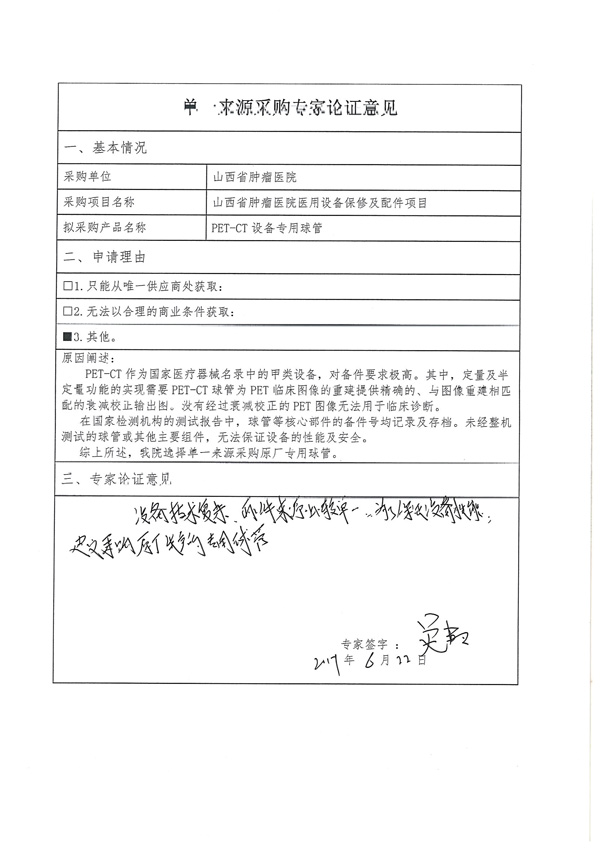 单一来源采购专家论证意见
一、基本情况
采购单位 山西省肿瘤医院
采购项目名称 山西省肿瘤医院医用设备保修及配件项目
拟采购产品名称 PET-CT 设备专用球管
二、申请理由
□1.只能从唯一供应商处获取：
□2.无法以合理的商业条件获取：
■3.其他。
原因阐述：
PET-CT 作为国家医疗器械名录中的甲类设备，对备件要求极高。其中，定量及半
定量功能的实现需要 PET-CT 球管为 PET 临床图像的重建提供精确的、与图像重建相匹
配的衰减校正输出图。没有经过衰减校正的 PET 图像无法用于临床诊断。
在国家检测机构的测试报告中，球管等核心部件的备件号均记录及存档。未经整机
测试的球管或其他主要组件，无法保证设备的性能及安全。
综上所述，我院选择单一来源采购原厂专用球管。
三、专家论证意见
设备技术复杂、配件来源比较单一，为了保证设备性能，
建议采购原厂生产的专用球管
专家签字：
2017 年 6 月 22 日